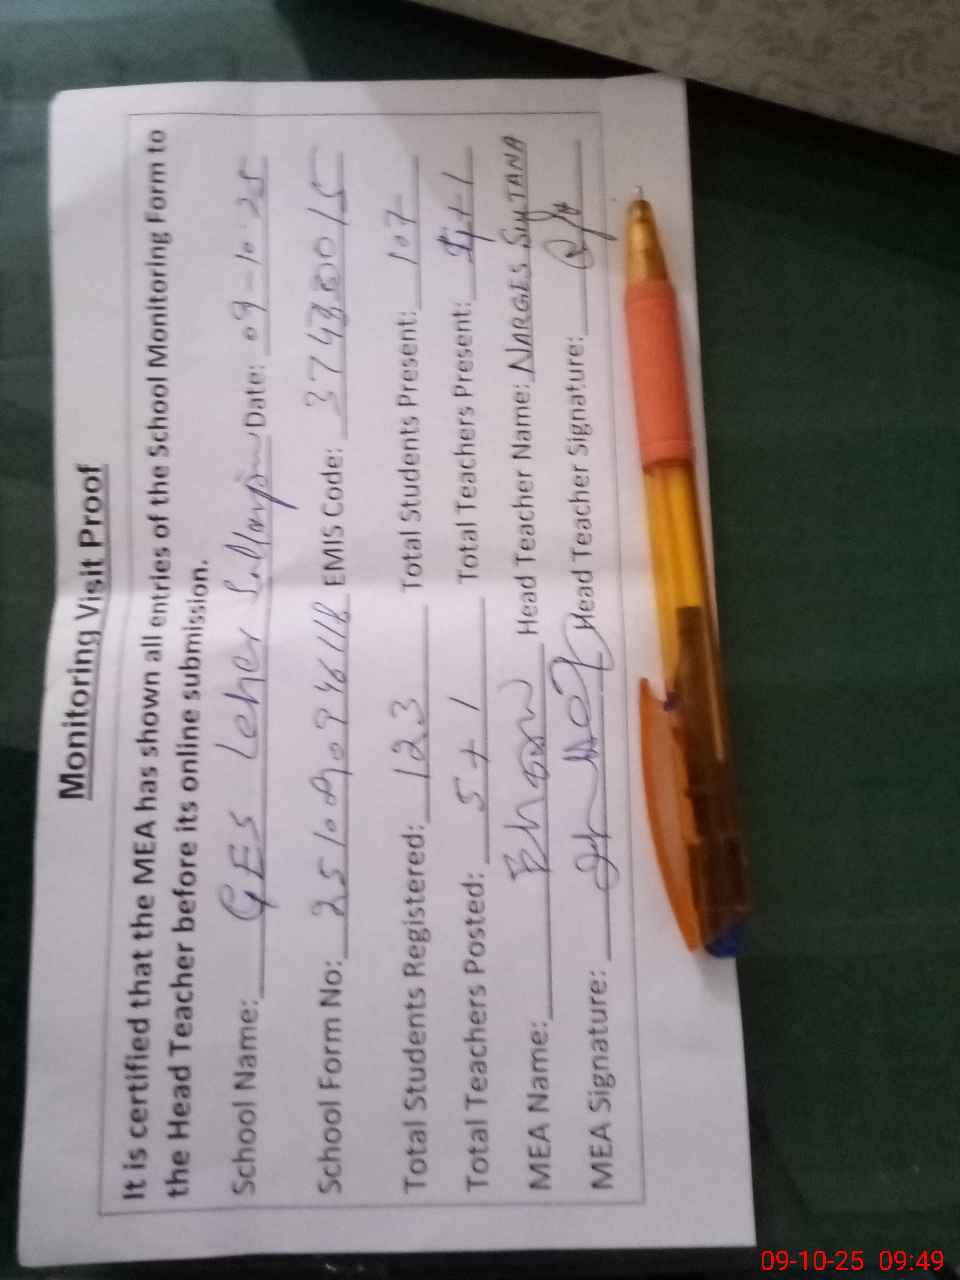 Monitoring Visit Proof
It is certified that the MEA has shown all entries of the School Monitoring Form to
the Head Teacher before its online submission.
School Name: GES Leher Date: 09-10-25
School Form No: EMIS Code:
Total Students Registered: 123 Total Students Present: 107
Total Teachers Posted: 5+1 Total Teachers Present:
MEA Name: Head Teacher Name: NARGES SULTANA
MEA Signature: Head Teacher Signature:
09-10-25 09:49